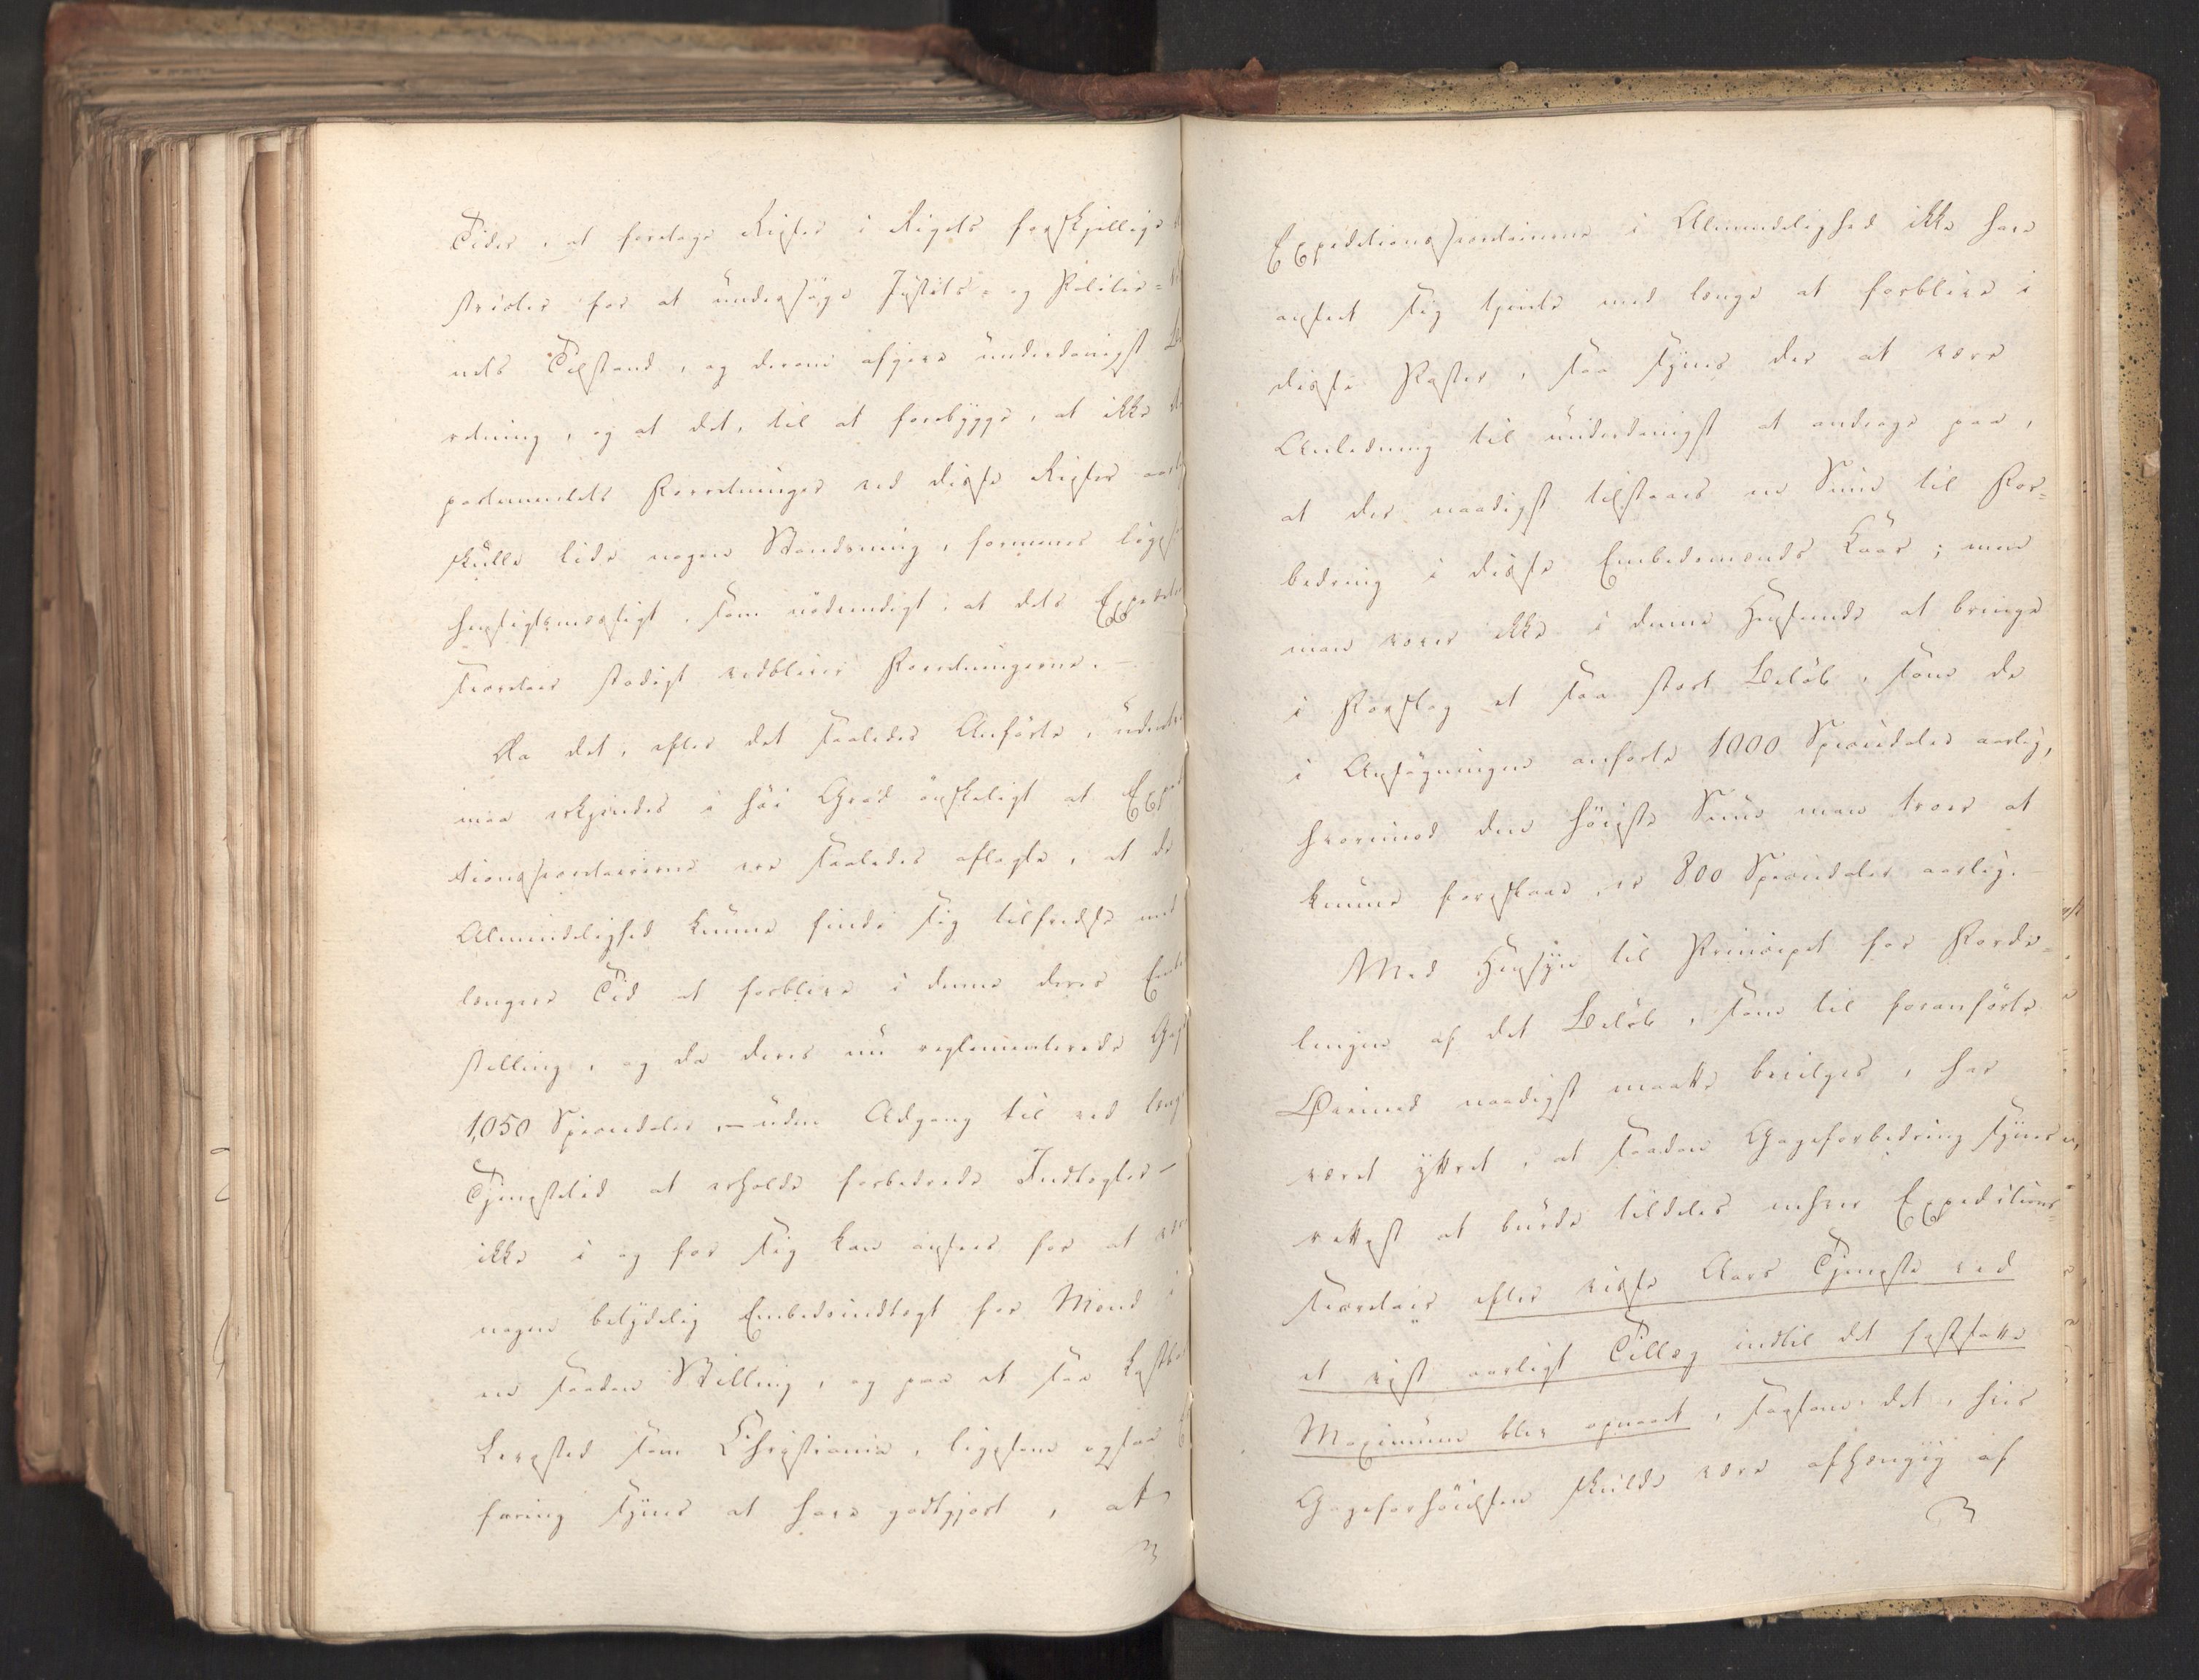 Tider, at foretage Reiser i Rigets forskjellige
strikter for at undersøge Justits- og Politiev=
nets Tilstand, og derom afgive underdanigst
retning, og at det, til at forebygge, at ikke
partementets Forretninger ved disse Reiser
skulle lide nogen Standsning, formenes ligesaa
hensigtsmæssigt, som nødvendigt, at dets Expeditions
Secretair stadigt vedbliver Forretningerne. —
Da det, efter det saaledes Anførte,
maa erkjendes i høi Grad ønskeligt at Expedi
tionssecretairerne ere saaledes aflagte, at de
Almindelighed kunne finde sig tilfredse med
længere Tid at forblive i denne deres
stilling, og da deres nu reglementerede Gage
1,050 Speciedaler, — uden Adgang til ved længere
Tjenestetid at erholde forbedrede Indtægter —
ikke i og for sig kan ansees for at være
nogen betydelig Embedsindtægt for Mænd i
en saadan Stilling, og paa et saa kostbart
Levested som Christiania, ligesom ogsaa
faring synes at have godtgjort, at
Expeditionssecretairerne i Almindelighed ikke have
anseet sig tjente med længe at forblive i
disse Poster, saa synes der at være
Anledning til underdanigst at andrage paa,
at der naadigst tilstaaes en Sum til For=
bedring i disse Embedsmænds Kaar; men
man vover ikke i denne Henseende at bringe
i Forslag et saa stort Beløb, som de
i Ansøgningen anførte 1000 Speciedaler aarlig,
hvorimod den høieste Sum man troer at
kunne foreslaae, er 800 Speciedaler aarlig.
Med Hensyn til Principet for Forde=
lingen af det Beløb, som til foranførte
Øiemed naadigst maatte bevilges, har
været yttret, at saadan Gageforbedring synes
rettest at burde tildeles enhver Expeditions=
Secretair efter visse Aars Tjeneste ved
et vist aarligt Tillæg indtil det fastsatte
Maximum blev opnaaet, saasom det, hvis
Gageforhøielsen skulde være afhængig af